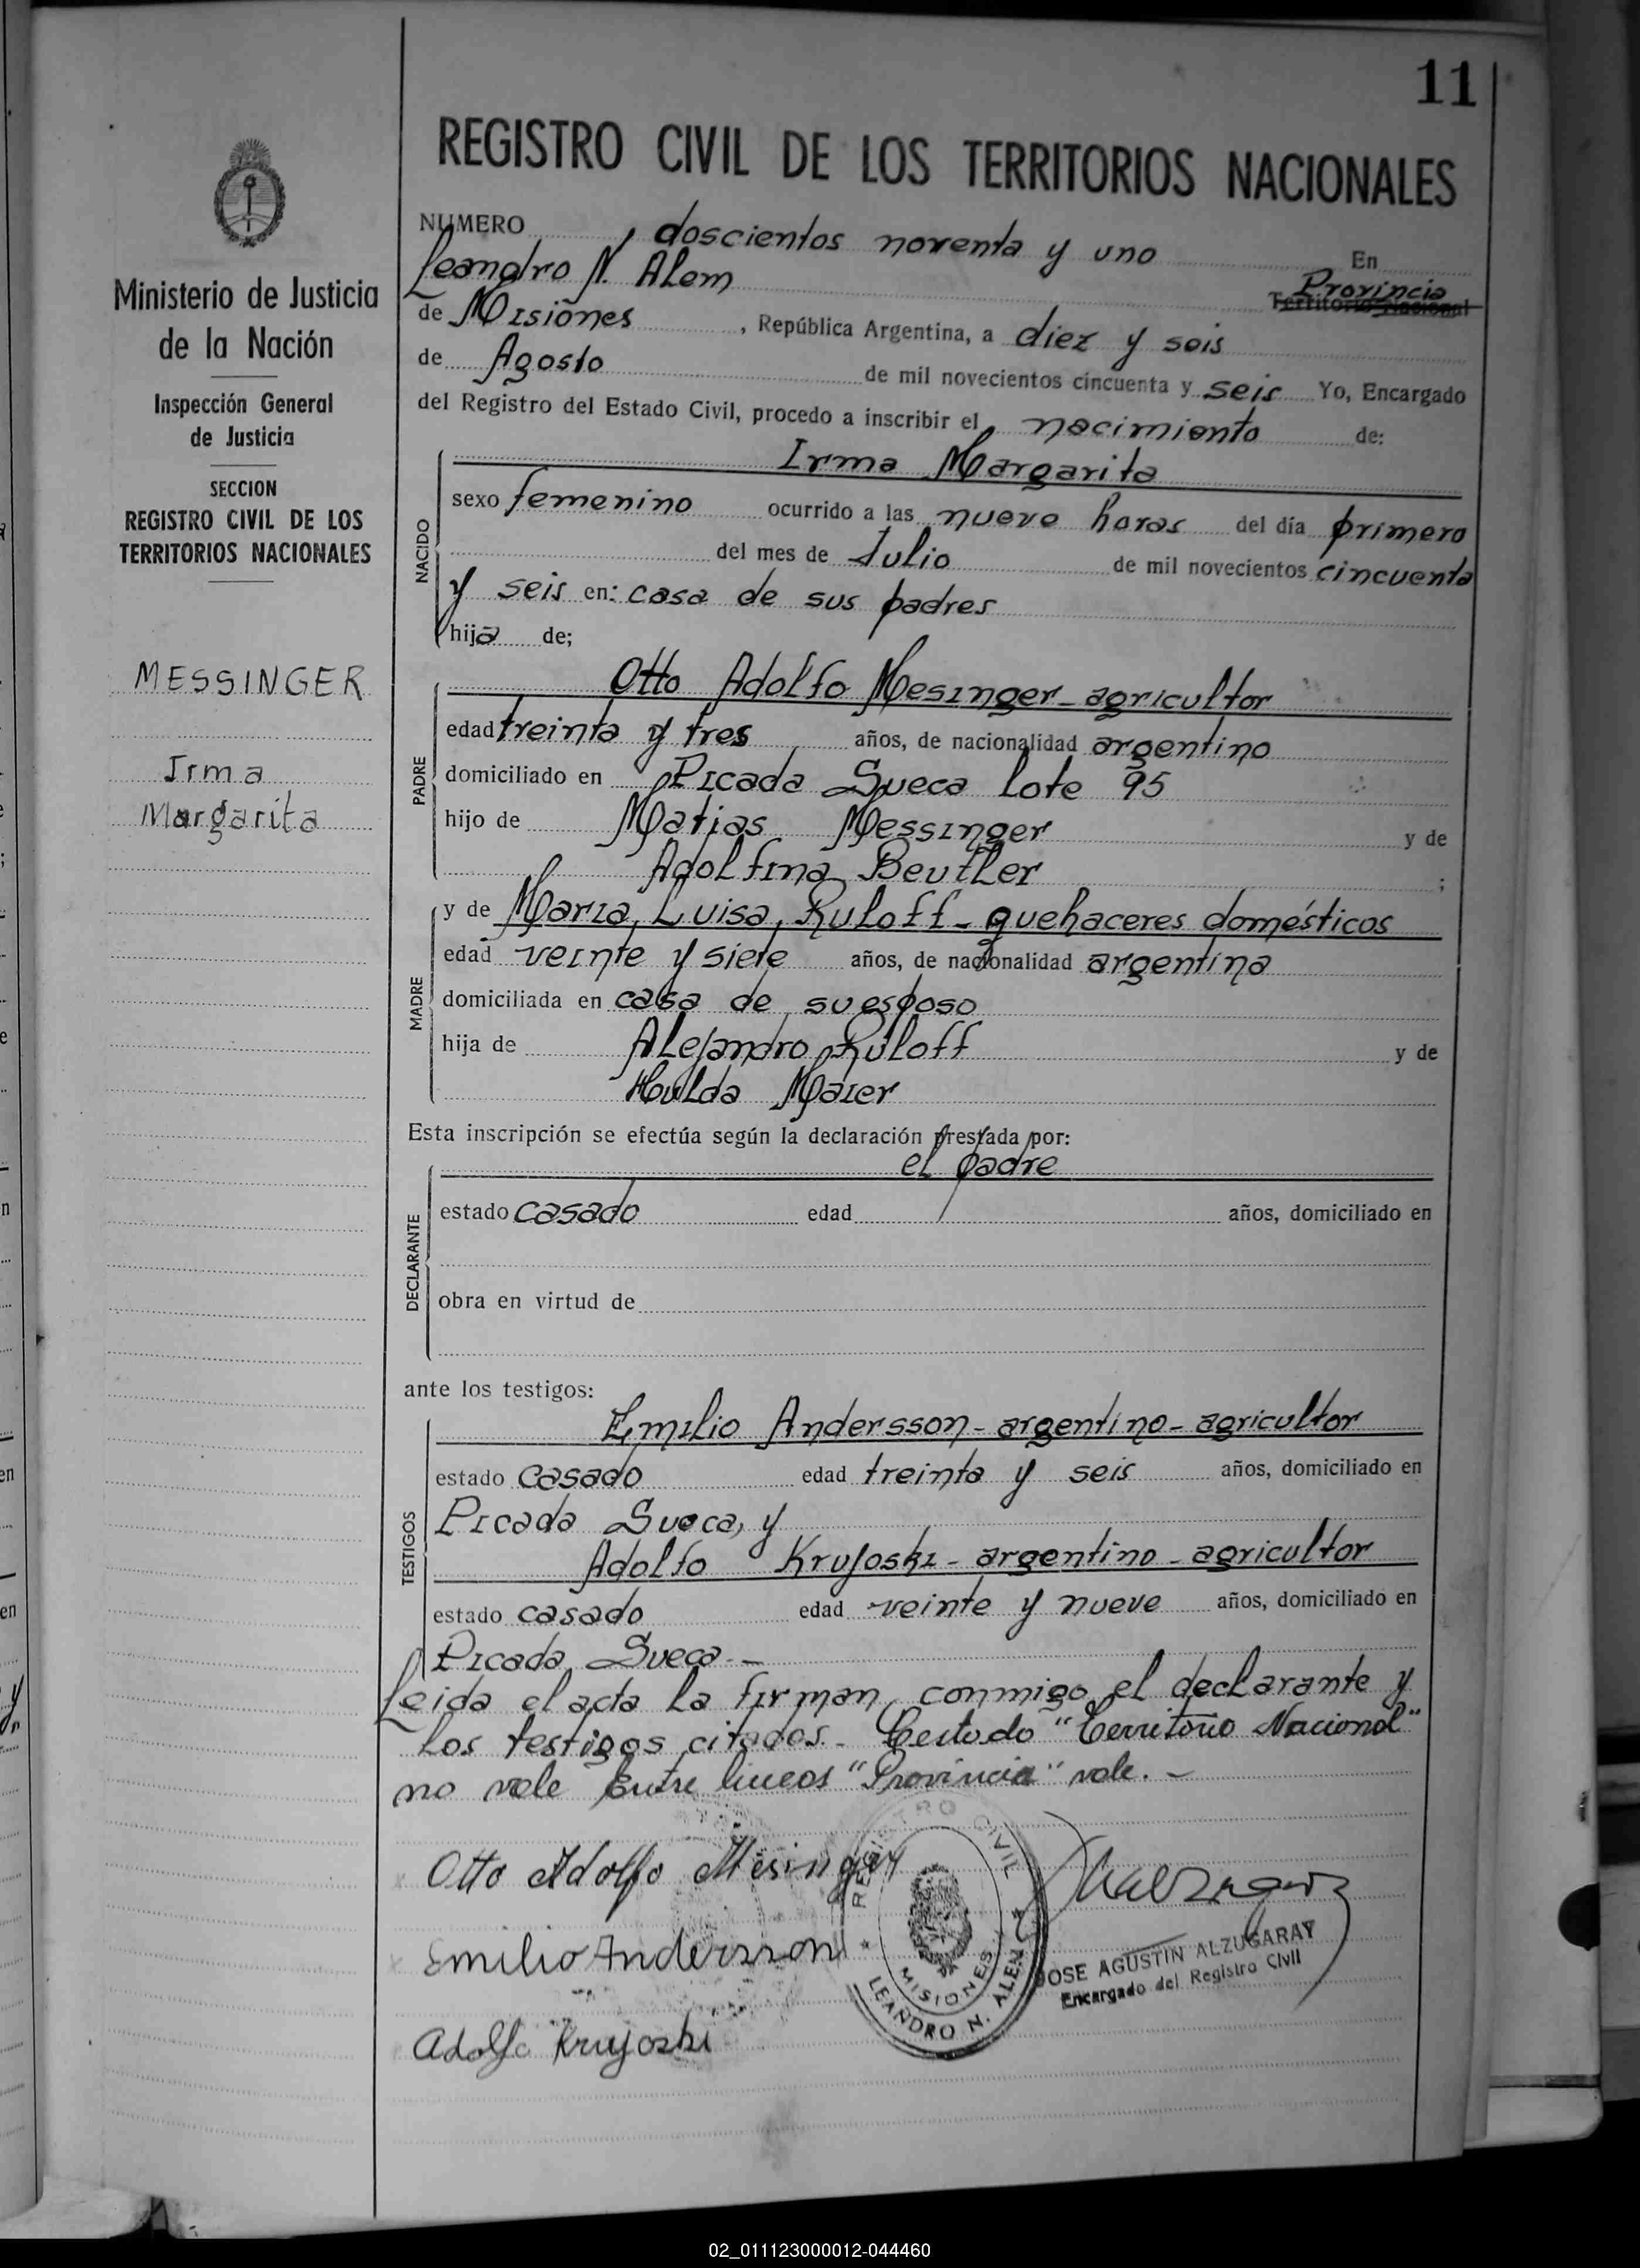 11
REGISTRO CIVIL DE LOS TERRITORIOS NACIONALES
Ministerio de Justicia
de la Nación
Inspección General
de Justicia
SECCION
REGISTRO CIVIL DE LOS
TERRITORIOS NACIONALES
MESSINGER
Irma
Margarita
NUMERO doscientos noventa y uno En
Leandro N. Alem Provincia
Territorio Nacional
de Misiones, República Argentina, a diez y seis
de Agosto de mil novecientos cincuenta y seis Yo, Encargado
del Registro del Estado Civil, procedo a inscribir el nacimiento de:
NACIDO
Irma Margarita
sexo femenino ocurrido a las nueve horas del día primero
del mes de Julio de mil novecientos cincuenta
y seis en: casa de sus padres
hija de;
PADRE
Otto Adolfo Mesinger - agricultor
edad treinta y tres años, de nacionalidad argentino
domiciliado en Picada Sueca Lote 95
hijo de Matias Messinger y de
Adolfina Beutler ;
MADRE
y de Maria Luisa Ruloff - quehaceres domésticos
edad veinte y siete años, de nacionalidad argentina
domiciliada en casa de su esposo
hija de Alejandro Ruloff y de
Hulda Maier
Esta inscripción se efectúa según la declaración prestada por:
DECLARANTE
el padre
estado casado edad años, domiciliado en
obra en virtud de
ante los testigos:
TESTIGOS
Emilio Andersson - argentino - agricultor
estado casado edad treinta y seis años, domiciliado en
Picada Sueca, y
Adolfo Krujoski - argentino - agricultor
estado casado edad veinte y nueve años, domiciliado en
Picada Sueca. -
Leida el acta la firman conmigo el declarante y
los testigos citados - Testado "Territorio Nacional"
no vale Entre lineas "Provincia" vale. -
Otto Adolfo Mesinger
Emilio Andersson
Adolfo Krujoski
REGISTRO CIVIL
MISIONES
LEANDRO N. ALEM
JOSE AGUSTIN ALZUGARAY
Encargado del Registro Civil
02_011123000012-044460